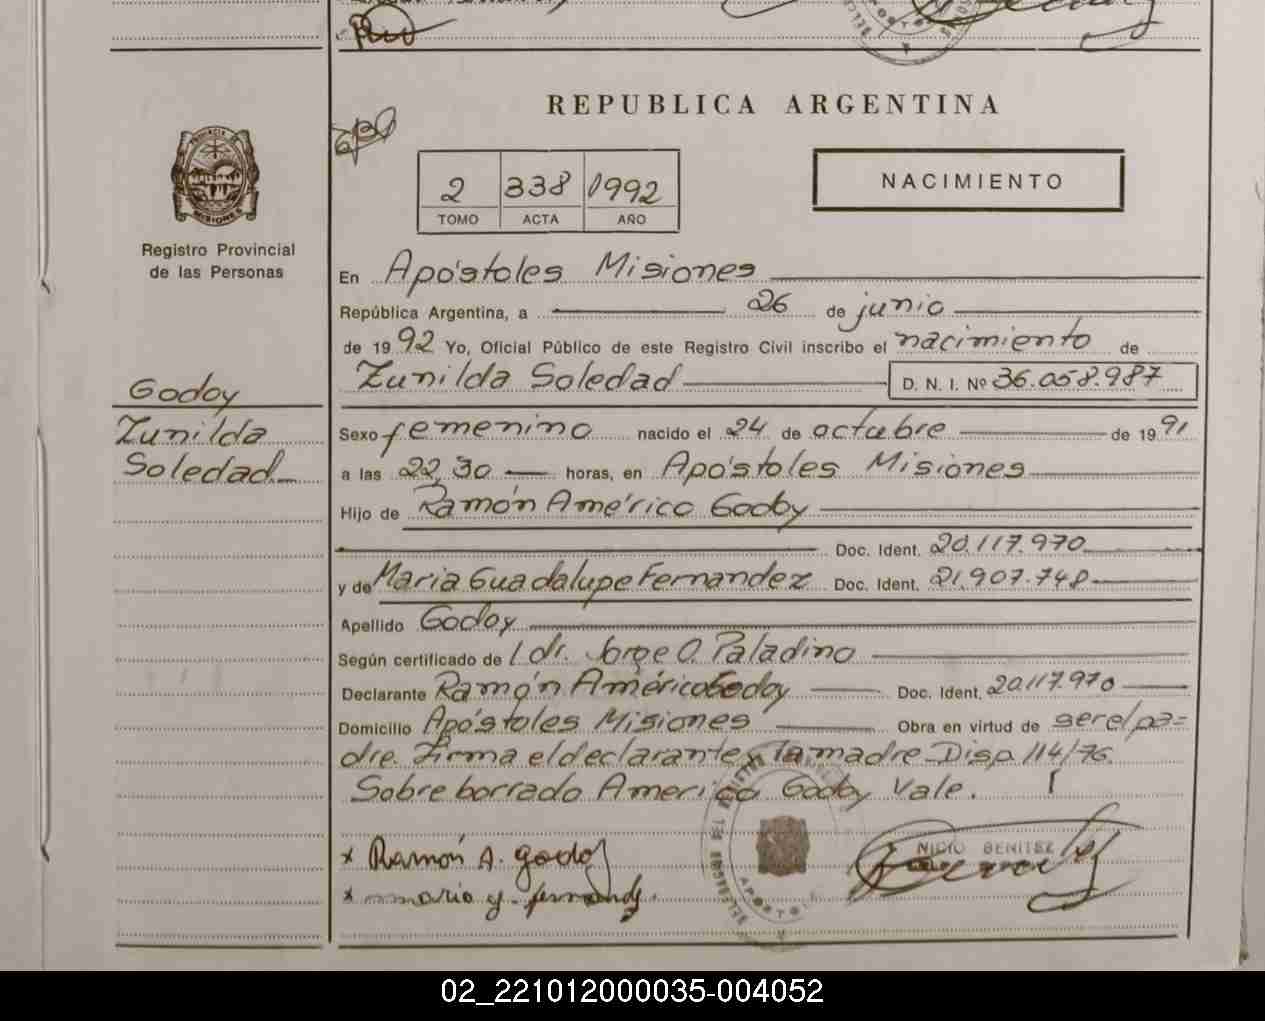 REPUBLICA ARGENTINA
2 338 1992
TOMO ACTA AÑO
NACIMIENTO
PROVINCIA DE
MISIONES
Registro Provincial
de las Personas
En Apóstoles Misiones
República Argentina, a 26 de junio
de 1992 Yo, Oficial Público de este Registro Civil inscribo el nacimiento de
Zunilda Soledad D. N. I. Nº 36.058.987
Godoy
Zunilda
Soledad
Sexo femenino nacido el 24 de octubre de 1991
a las 22,30 horas, en Apóstoles Misiones
Hijo de Ramón Américo Godoy
Doc. Ident. 20.117.970
y de Maria Guadalupe Fernandez Doc. Ident. 21.907.748
Apellido Godoy
Según certificado de l dr. Jorge O. Paladino
Declarante Ramón Américo Godoy Doc. Ident. 20.117.970
Domicilio Apóstoles Misiones Obra en virtud de ser el pa=
dre. Firma el declarante y la madre Disp. 114/76.
Sobre borrado Americo Godoy Vale.
x Ramón A. Godoy
NICIO BENITEZ
APOSTOLES
02_221012000035-004052